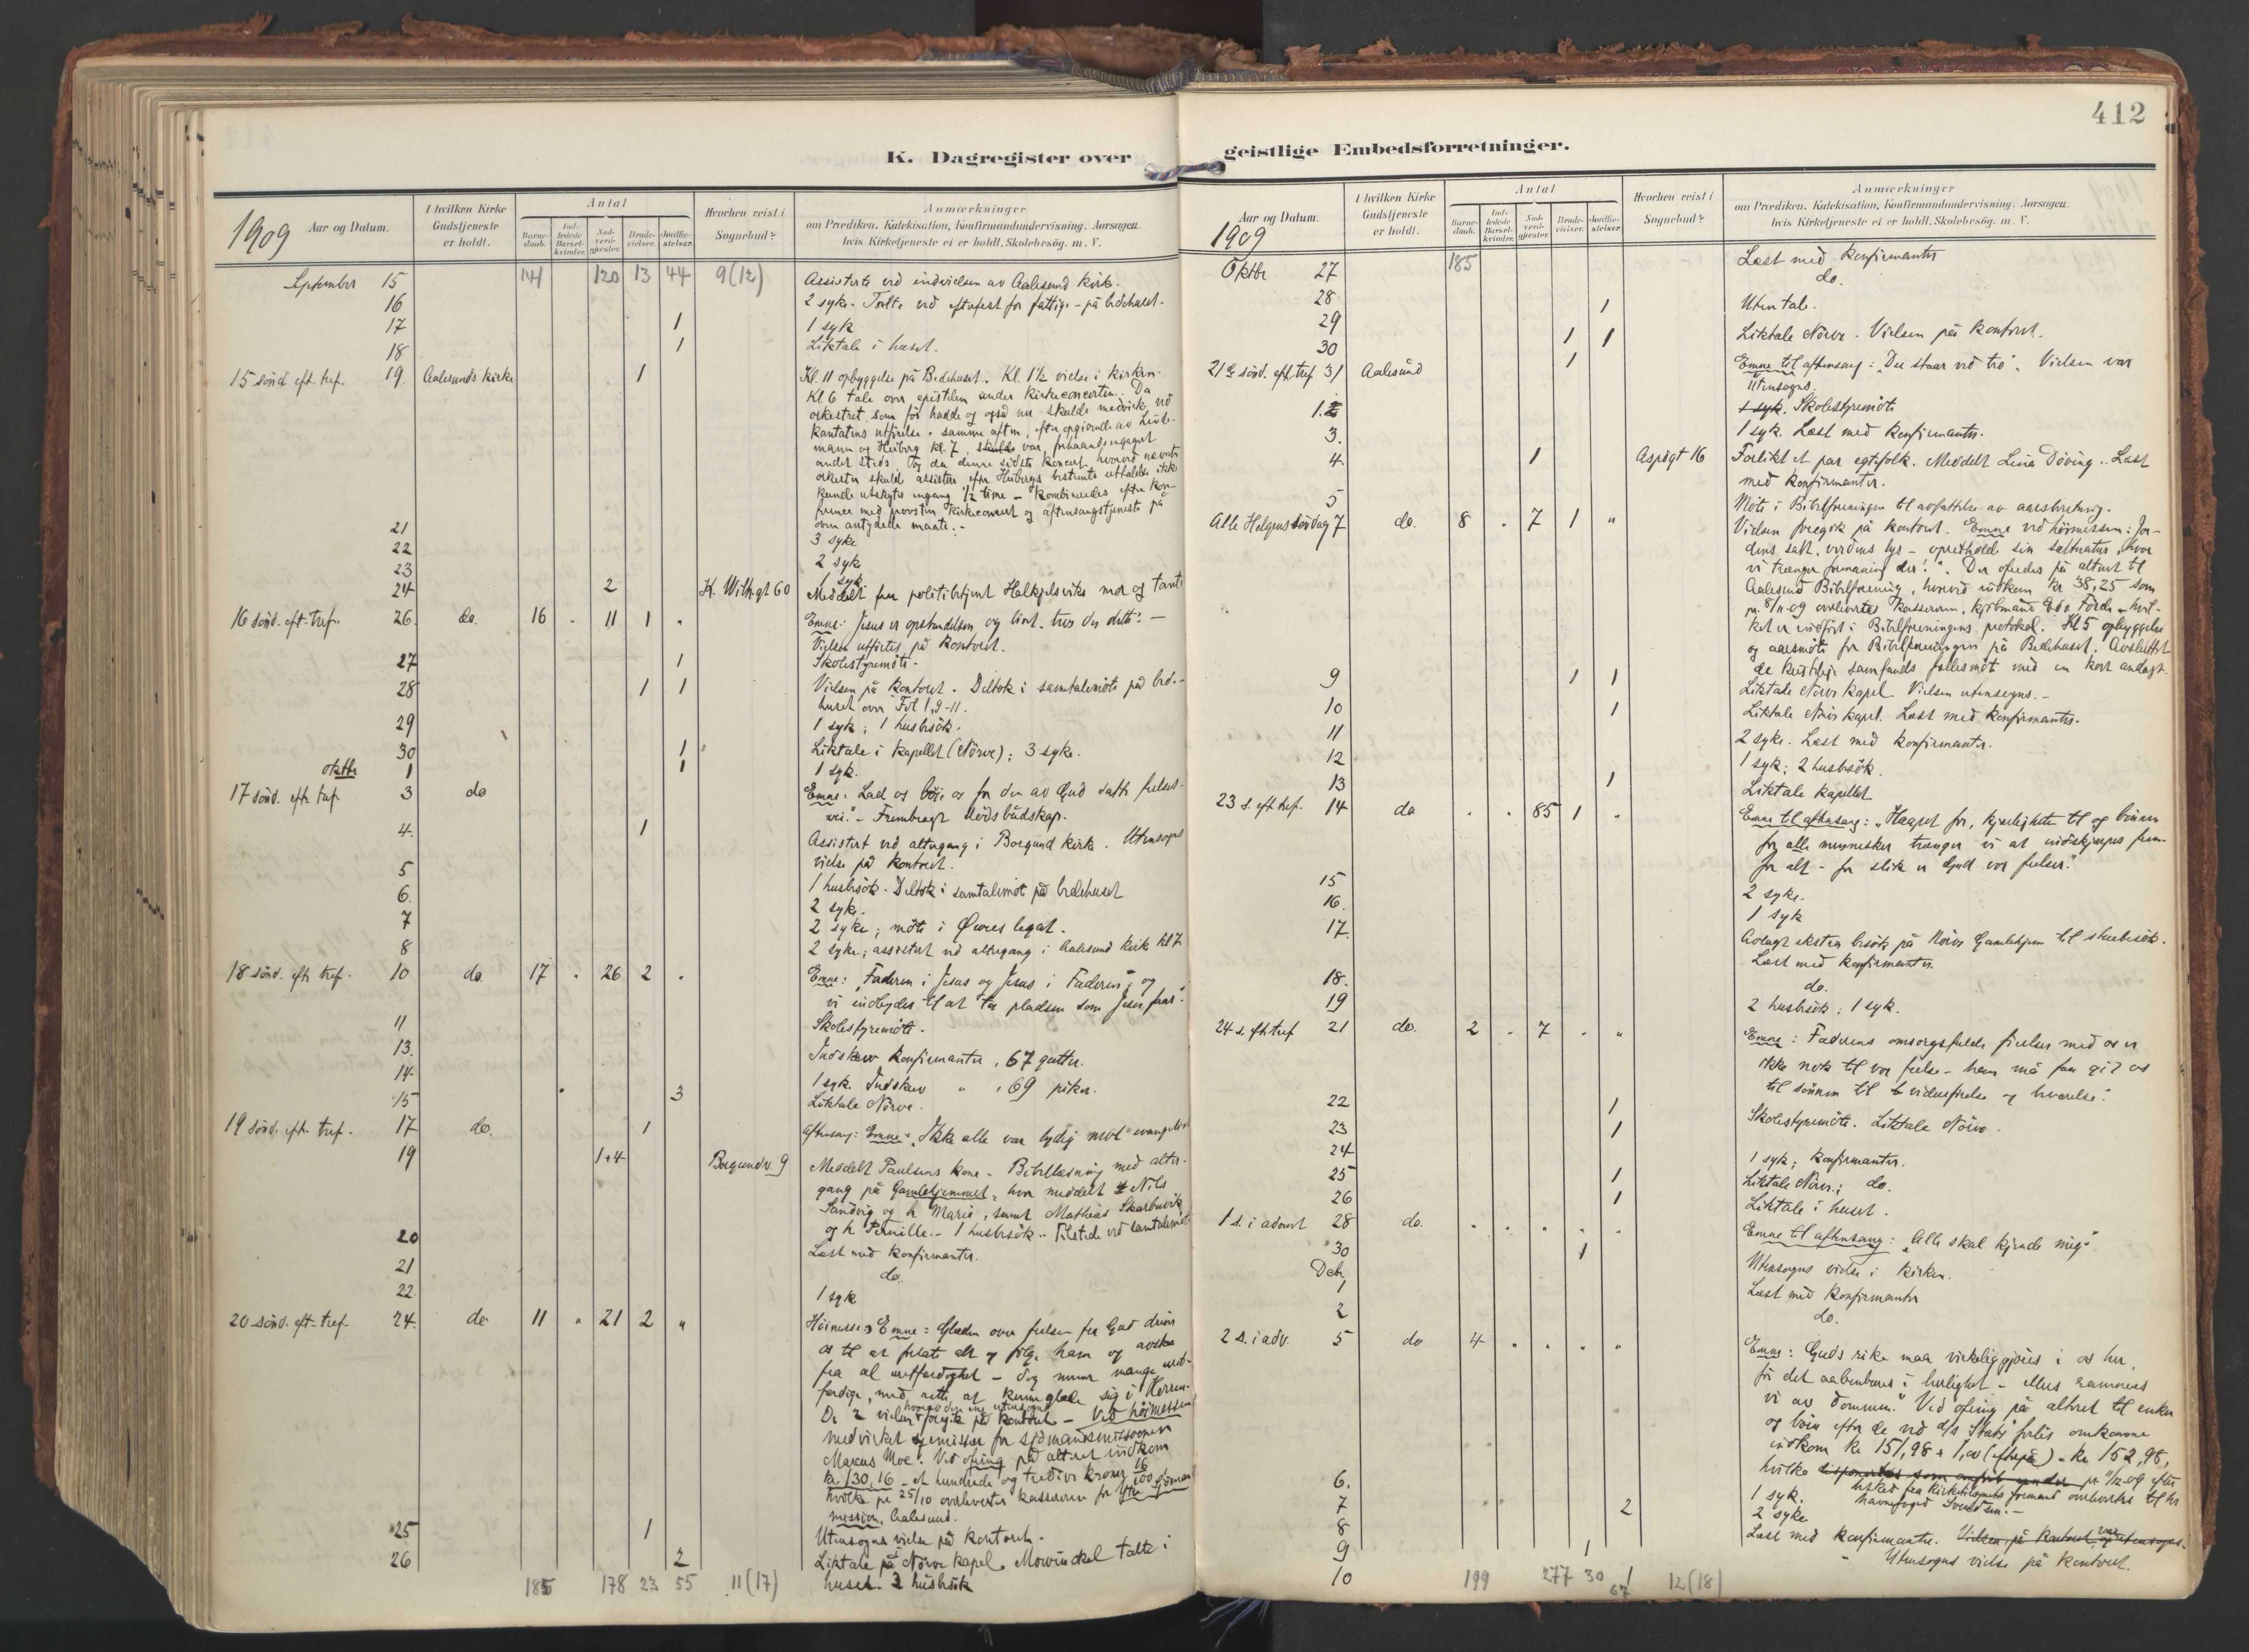 412
K. Dagregister over
1909 Aar og Datum.
I hvilken Kirke Gudstjeneste er holdt.
Antal
Barnedaab. Indledede Barselkvinder. Nadverdgjester. Brudevielser. Jordfæstelser.
Hvorhen reist i Sognebud?
Anmærkninger
om Prædiken, Katekisation, Konfirmandundervisning. Aarsagen hvis Kirketjeneste ei er holdt. Skolebesög. m. V.
September 15 141 120 13 44 9(12) Assisterte ved indvielsen av Aalesund kirke.
16 2 syke. Talte ved aftenfest for fattige - på bedehuset.
17 1 1 syk
18 1 Liktale i huset.
15 sönd. eft. tref. 19. Aalesunds kirke 1 Kl. 11 opbyggelse på Bedehuset. Kl. 1½ vielse i kirken.
Kl 6 tale over epistelen under kirkeconcerten. Da
orkestret som för hadde og også nu skulde medvirke ved
kantatens utförelse samme aften, efter opgivende av
mann og Heiberg kl. 7, skulde var forhaandengagert
andet steds, og da denne sidste koncert hvorved nævnte
orkester skulde assistere efter Heibergs bestemte uttalelse ikke
kunde utskytes engang ½ time - kombineredes efter kon-
ference med provsten kirkeconcert og aftensangstjeneste på
oven antydede maate.-
21 3 syke
22 2 syk
23 1 syk
24 2 K. Wilh.gt 60 Meddelt frv politibetjent Helkjelsviks mor og tante
16 sönd. eft. tref. 26. do. 16 . 11 1 " Emne: Jesus er opstandelsen og livet. tror du dette? —
Vielsen utförtes på kontoret.
27 1 Skolestyremöte.
28 1 1 Vielsen på kontoret. Deltok i samtalemöte på bede-
huset over Fil 1,9-11.
29 1 syk; 1 husbesök.
30 1 Liktale i kapellet (Nörve); 3 syke.
oktbr 1 1 1 syk.
17 sönd. eft. tref. 3 do Emne: Lad os böie os for den av Gud satte frelses-
vei." - Frembragt dödsbudskap.
4. 1 Assistert ved altergang i Borgund kirke. Utensogns
vielse på kontoret.
5 1 husbesök. Deltok i samtalemöt på bedehuset
6. 2 syke.
7 2 syke; möte i Øwres legat.
8 2 syke; assistert ved altergang i Aalesund kirke kl 7
18 sönd. eft. tref. 10 do 17 . 26 2 . Emne: "Faderen i Jesus og Jesus i Faderen", og
vi indbydes til at ta pladsen som Jesus faar".
11 Skolestyremöte.
13. Indskrev konfirmanter, 67 gutter.
14 1 syk. Indskrev " , 69 piker.
15 3 Liktale Nörve.
19 sönd. eft. tref. 17 do. 1 Aftensang: Emne: "Ikke alle var lydig mot evangeliet
19 1+4 Borgundv. 9 Meddelt Paulsens kone. Bibellæsning med alter-
gang på Gamlehjemmet, hvor meddelt Nils
Sandvig og h. Marie, samt Mathias Skarbövik
og h Pernille.- 1 husbesök.. Tilstede ved samtalemöte
20 Læst med konfirmanter.
21 do.
22 1 syk
20 sönd. eft. tref. 24. do 11 " 21 2 " Höimesse: Emne: Glæden over frelsen fra Gud driver
os til at forlate alt og fölge ham og avstaa
fra al uretfærdighet - dog mener mange uret-
færdige, med rette at kunne glæde sig i Herren.
De 2 vielser hvorav den ene utensogns foregik på kontoret - Ved höimessen
medvirket emissær for sjömandsmissionen
Marcus Moe. Ved ofring på altret indkom
kr 130,16 - et hundrede og tredive kroner 16/100
hvilke pr 25/10 overleveres kassereren for Ytre Sjömands
mission, Aalesund.
25 1 Utensogns vielse på kontoret.
26 2 Liktale på Nörve kapel. Mowinckel talte i
huset. 2 husbesök
185 178 23 55 11(17)
geistlige Embedsforretninger.
Aar og Datum. 1909
I hvilken Kirke Gudstjeneste er holdt.
Antal
Barnedaab. Indledede Barselkvinder. Nadverdgjester. Brudevielser. Jordfæstelser.
Hvorhen reist i Sognebud?
Anmærkninger
om Prædiken, Katekisation, Konfirmandundervisning. Aarsagen hvis Kirketjeneste ei er holdt. Skolebesög. m. V.
Oktbr 27 185 Læst med konfirmanter
28 do.
29 1 Uten tale.
30 1 1 Liktale Nörve. Vielsen på kontoret.
21 de sönd. eft tref 31 Aalesund 1 Emne til aftensang: "Du staar ved tro". Vielsen var
utensogns.
1. 1 syk. Skolestyremöte
3. 1 syk. Læst med konfirmanter.
4. 1 Aspögt 16 Forlikt et par egtefolk. Meddelt Lina Döving.. Læst
med konfirmanter.
5 Möte i Bibelforeningen til avfattelse av aarsberetning.
Alle Helgens söndag 7 do. 8 . 7 1 " Vielsen foregik på kontoret. Emne ved höimessen: Jor-
dens salt, verdens lys - opretholde sin saltnatur, hvor
vi trænger formaning der!". Der ofredes på altret til
Aalesund Bibelforening, hvorved indkom kr 38,25 som
pr. 8/11-09 overlevertes kassereren, kjöbmand Edv. Förde - hvil-
ket er indfört i Bibelforeningens protokol. Kl 5 opbyggelse
og aarsmöte for Bibelforeningen på Bedehuset. Avsluttet
de kristelige samfunds fellesmöt med en kort andagt.
9 1 1 Liktale Nörve kapel. Vielsen utensogns.-
10 1 Liktale Nörve kapel. Læst med konfirmanter.
11 2 syke. Læst med konfirmanter.
12 1 syk; 2 husbesök.
13 1 Liktale kapellet
23 s. eft tref. 14 do . . 85 1 " Emne til aftensang: "Haapet for, kjærligheten til og bönnen
for alle mennesker trænger vi at indskjærpes frem-
for alt - for slik er Gud vor frelser".
15 2 syke.
16. 1 syk
17. Avlagt ekstra besök på Nörve Gamlehjem til skebesök.
Læst med konfirmanter.
18. do.
19 2 husbesök; 1 syk.
24 s. eft tref 21 do. 2 . 7 . " Emne: Faderens omsorgsfulde förelser med os er
ikke nok til vor frelse - han må faa gi os
til sönnen til videreförelse og hvorelse".
22 1 Skolestyremöte. Liktale Nörve.
23 1
24 1 syk; konfirmanter.
25 1 Liktale Nörve.; do.
26 1 Liktale i huset.
1 s. i advent 28 do. . . . . . Emne til aftensang: "Alle skal kjende mig"
30 1 Utensogns vielse i kirken.
Decbr 1 Læst med konfirmanter
2 do.
2 s. i adv. 5 do 4 . . . . Emne: Guds rike maa virkeliggjöres i os her,
för det aabenbares i herlighet - ellers rammes
vi av dommen." Ved ofring på altret til enker
og börn efter de ved d/s Stats forlis omkomne
indkom kr 151,98 + 1,00 (efterpå) = kr 152,98,
hvilke disponertes som pr. 11/12-09 efter
beslut fra kirketilsynets formand overleveres til hr
havnefoged Svendsen.-
6. 1 syk.
7 2 2 syke
8 Læst med konfirmanter. Vielsen på kontoret var utensogns.
9 1 - Utensogns vielse på kontoret.
10 1
199 277 30 67 12(18)